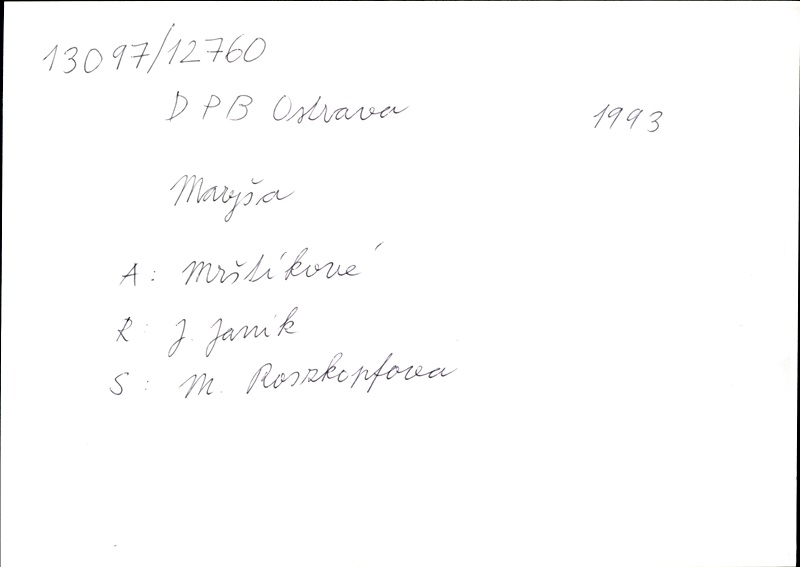 13097/12760
D P B Ostrava 1993
Maryša
A: Mrštíkové
R: J. Janik
S: M. Roszkopfova